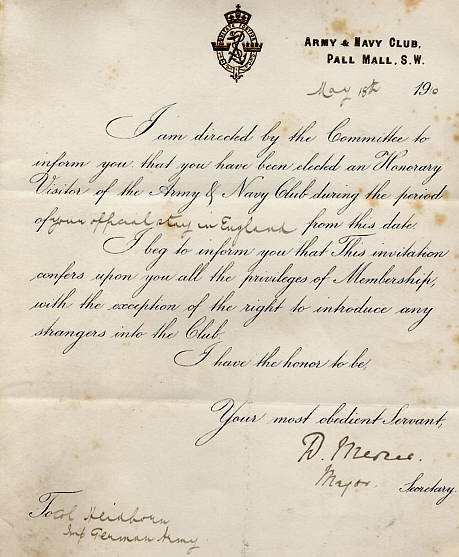 ARMY & NAVY CLUB,
PALL MALL, S.W.
May 18th 190
I am directed by the Committee to
inform you that you have been elected an Honorary
Visitor of the Army & Navy Club during the period
of your official stay in England from this date.
I beg to inform you that This invitation
confers upon you all the privileges of Membership,
with the exception of the right to introduce any
strangers into the Club.
I have the honor to be,
Your most obedient Servant,
D.
Major. Secretary.
To Col Heidborn
German Army